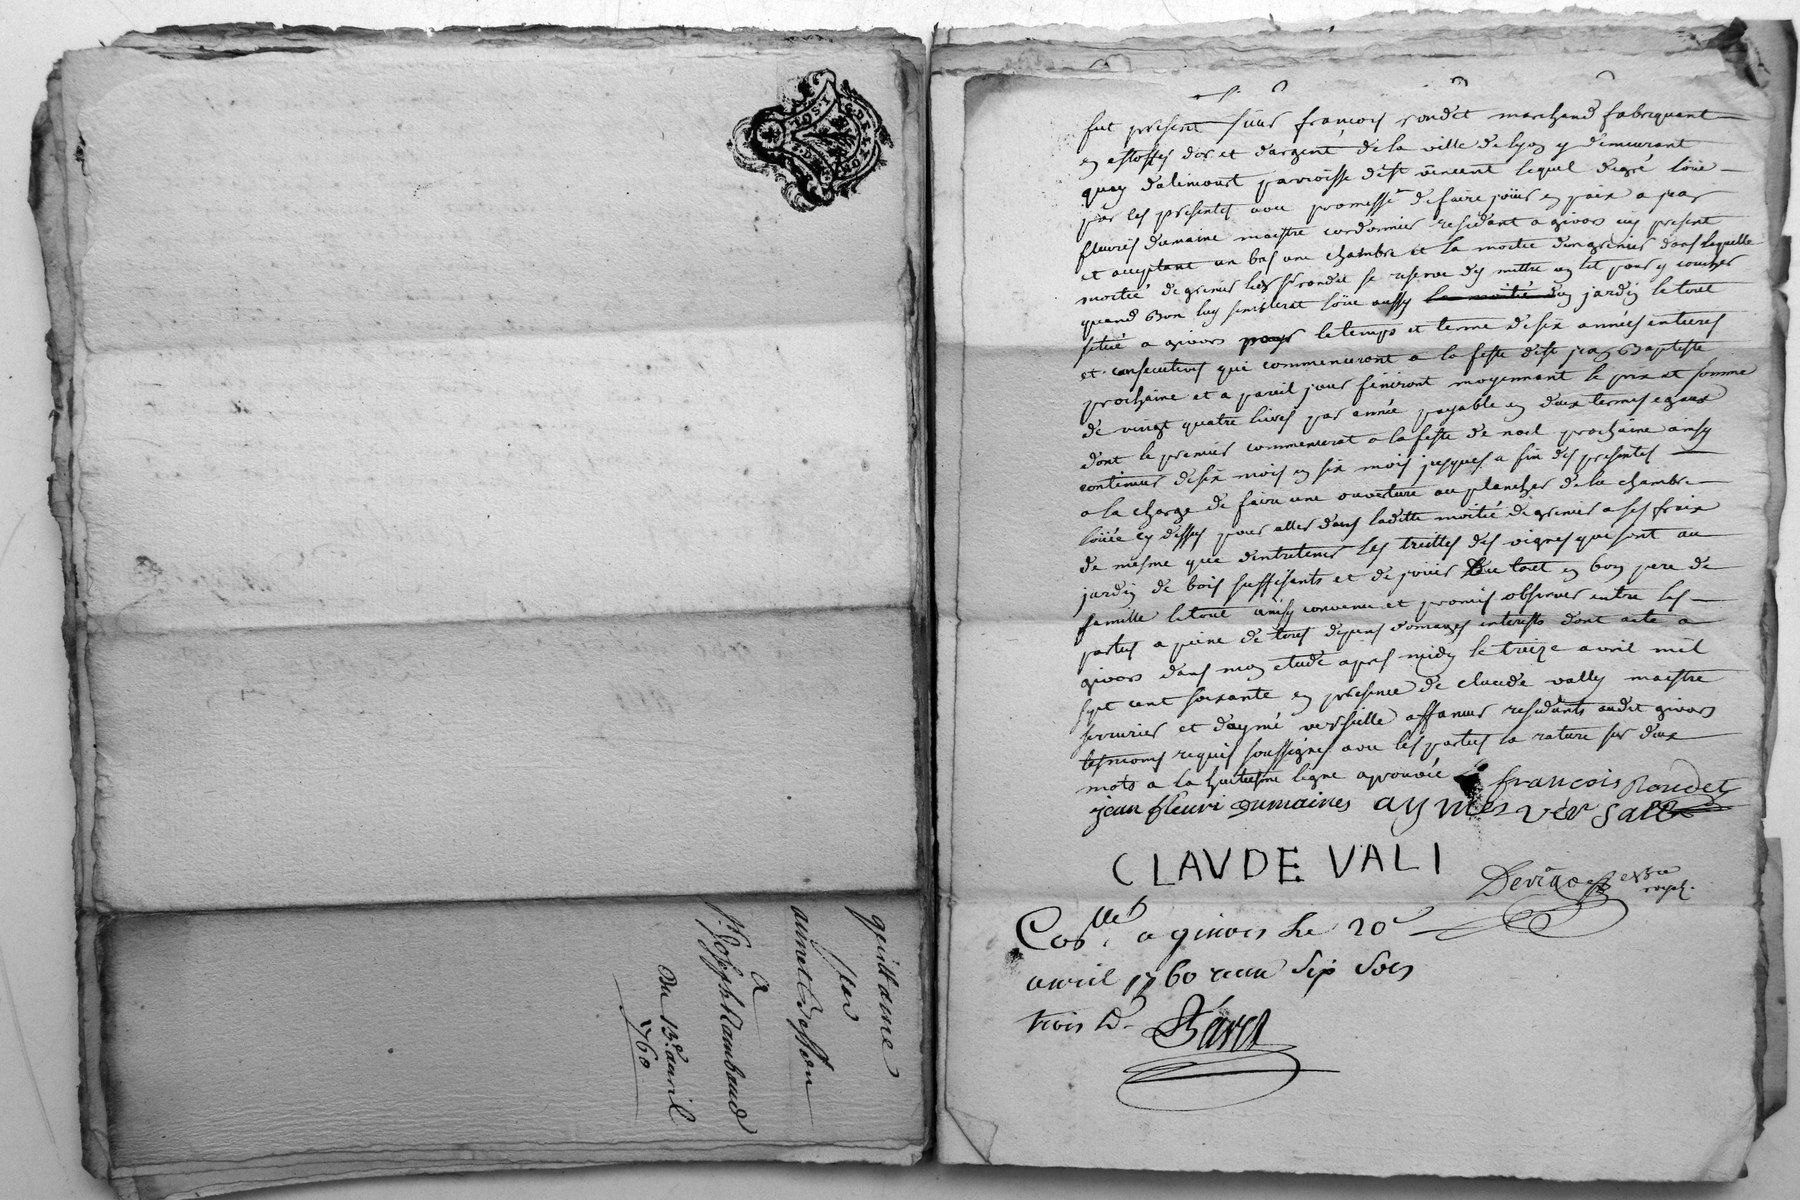 quittance
par
aimet Besson
a
Sr Joseph Rambaud
du 13e avril
1760
fut present sieur francois rondet marchand fabriquant
en estoffes d'or et d'argent de la ville de lyon y demeurant
quay d'alincourt parroisse de st vincent lequel de gré loüe
par les presentes avec promesse de faire joüir en paix a jean
fleuries dumaine maistre cordonnier residant a givors icy present
et acceptant un bas une chambre et la moitié d'un grenier dans laquelle
moitié de grenier led sr rondet se reserve d'y mettre un lit pour y coucher
quand bon luy semblerat loüe aussy la moitié d'un jardin le tout
situé a givors pour le temps et terme de six années entieres
et consecutives qui commenceront a la feste de st jean Baptiste
prochaine et a pareil jour finiront moyennant le prix et somme
de vingt quatre livres par année payable en deux termes egaux
dont le premier commencerat a la feste de noel prochaine ainsy
continuer de six mois en six mois jusques a fin des presentes
a la charge de faire une ouverture au plancher de la chambre
loüée cy dessus pour aller dans laditte moitié de grenier a ses fraix
de mesme que d'entretenir les treilles des vignes qui sont au
jardin de bois suffisants et de joüir du tout en bon pere de
famille le tout ainsy convenu et promis observer entre les
parties a peine de tous depens domages interests dont acte a
givors dans mon etude apres midy le treize avril mil
sept cent soixante en presence de claude vally maistre
serrurier et d'aymé versielle affaneur residants audit givors
tesmoins requis soussignes avec les parties la rature sur deux
mots a la huitiesme ligne aprouvée
francois Rondet
jean fleuri dumaines aymes ver sale
CLAVDE VALI
Con.lle a givors le 20e
avril 1760 reçu six sols
trois d.